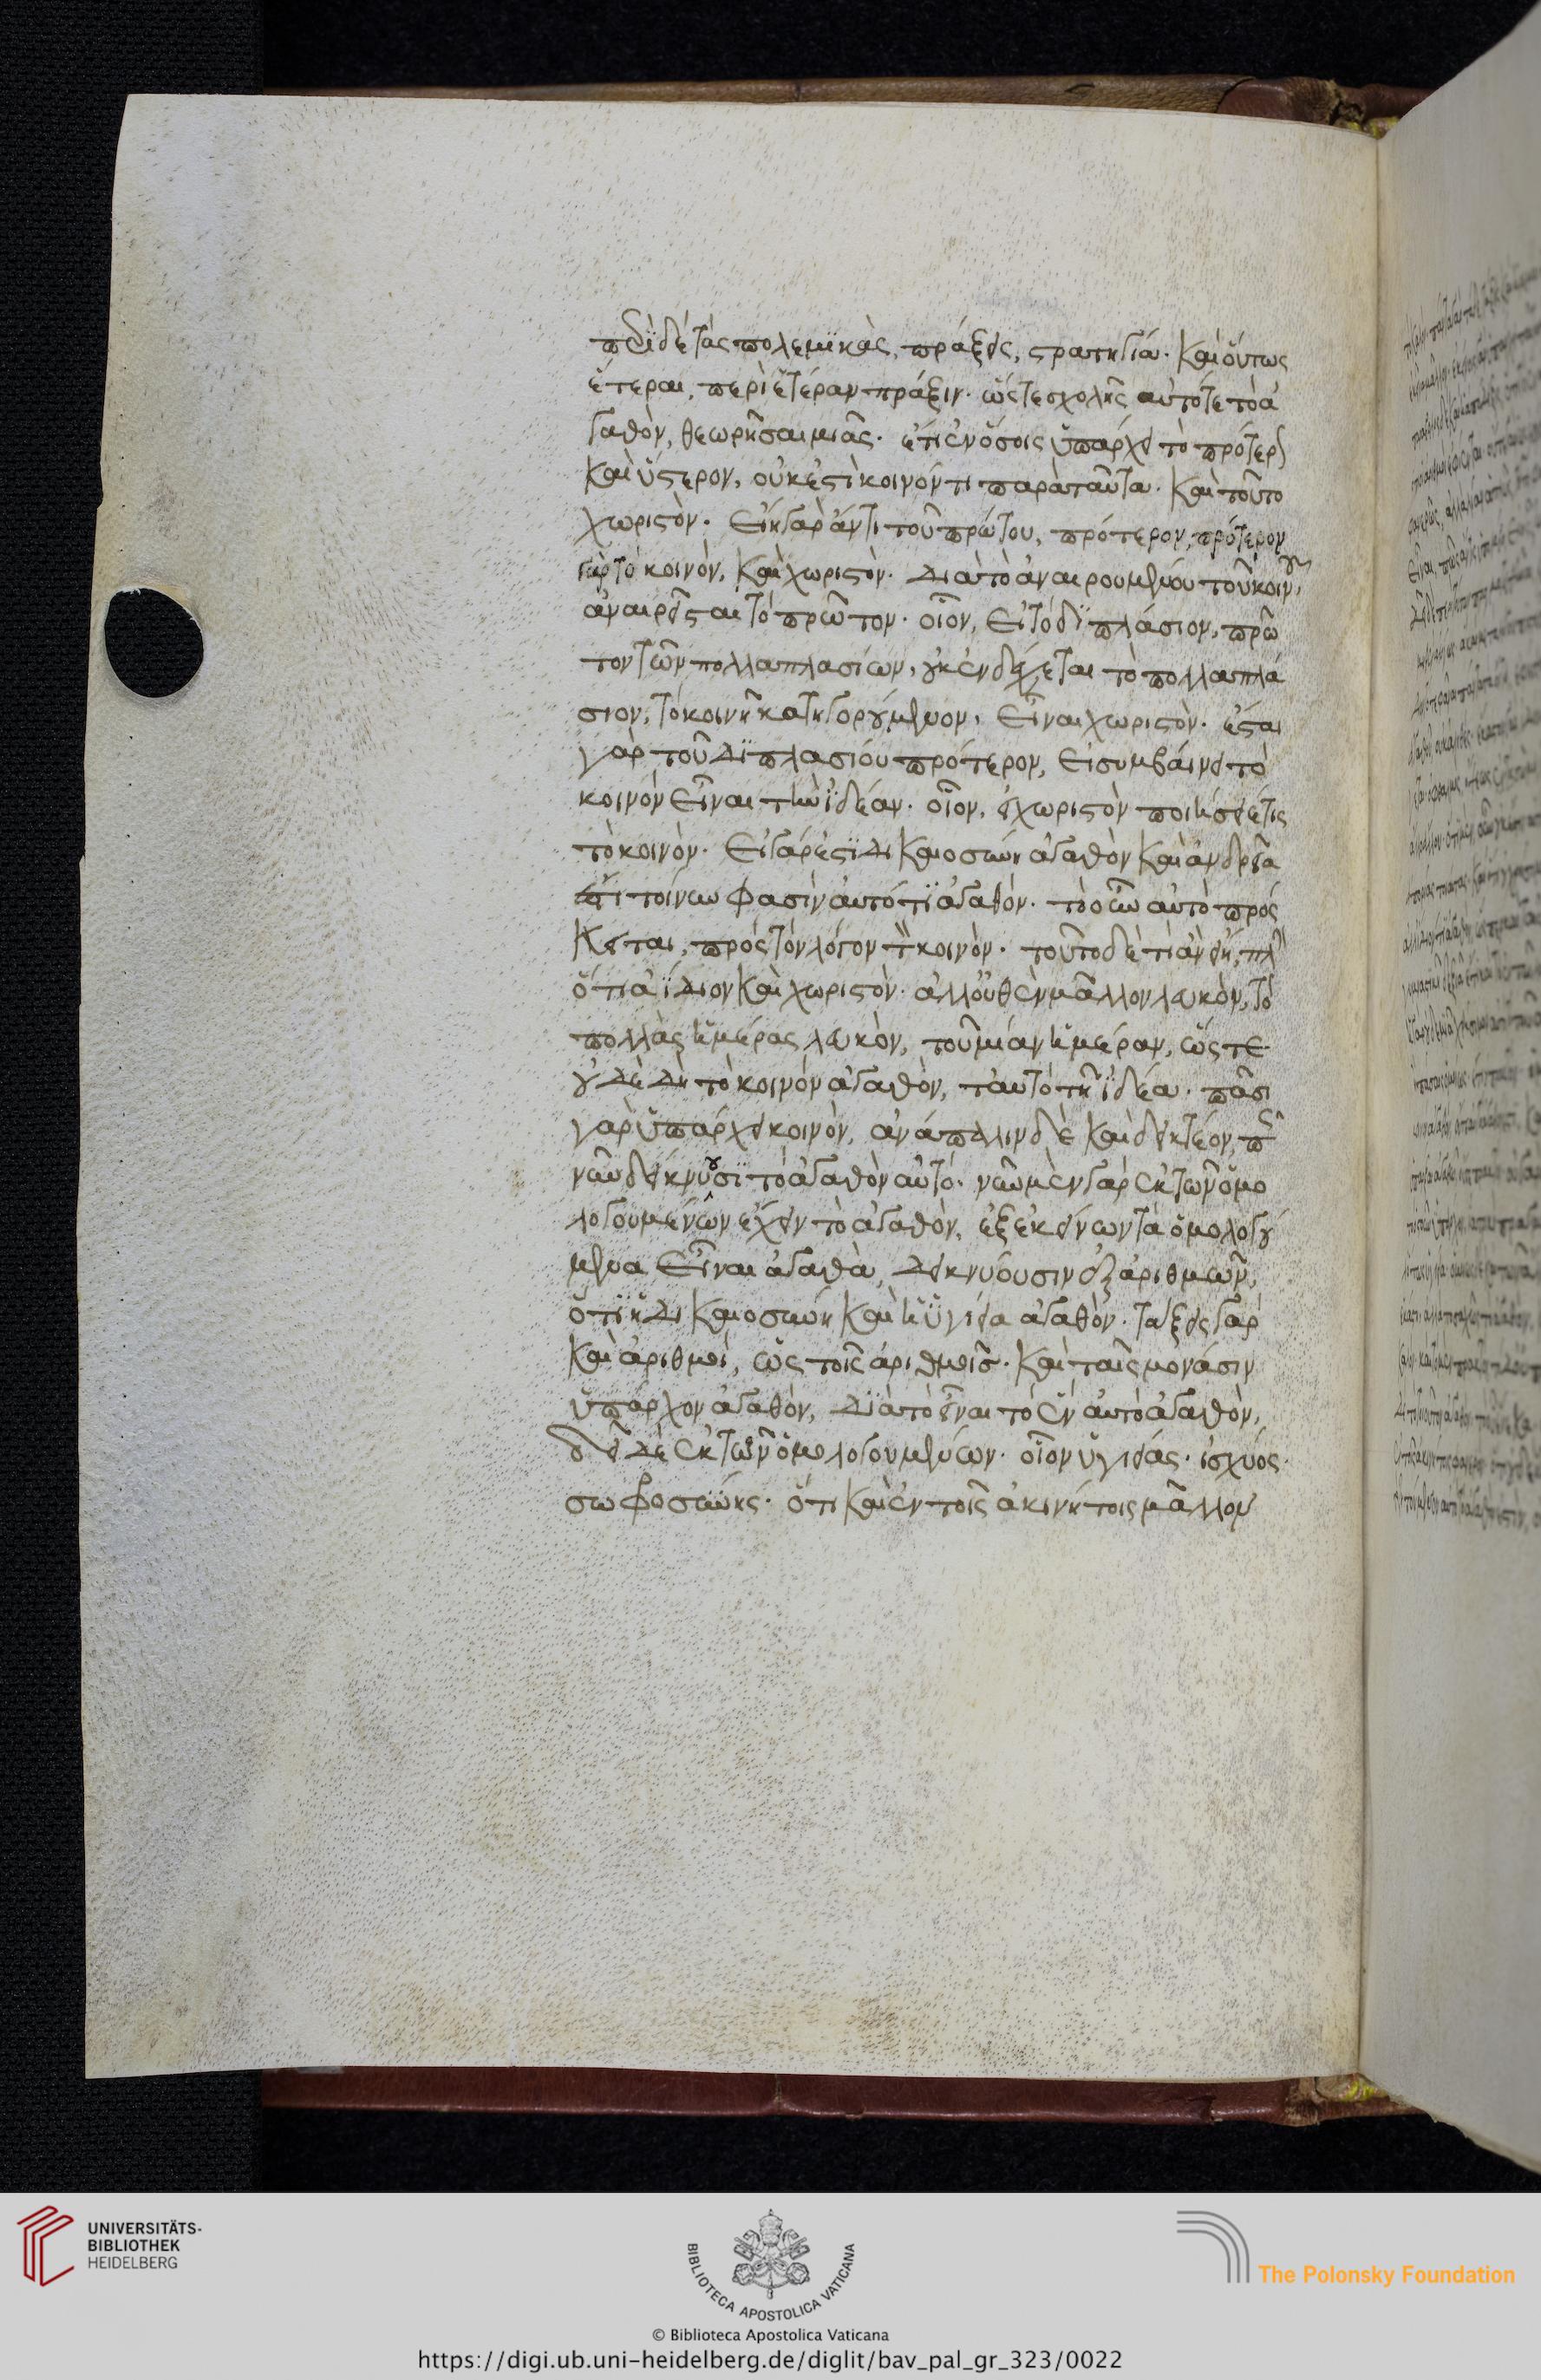 περὶ δὲ τὰς πολεμϊκὰς, πράξεις, στρατηγία. Καὶ οὕτως
ἕτεραι, περὶ ἑτέραν πράξιν. ὥστε σχολῆς αὐτό τε τὸ ἀ
γαθὸν, θεωρῆσαι μιᾶς. ἔτι ἐν ὅσοις ὑπάρχει τὸ πρότερον
Καὶ ὕστερον, οὐκ ἔστι κοινόν τι παρὰ ταῦτα. Καὶ τοῦτο
χωριστὸν. Εἴη γὰρ ἄν τι τοῦ πρώτου, πρότερον, πρότερον
γὰρ τὸ κοινὸν, Καὶ χωριστὸν. Διὰ τὸ ἀναιρουμένου τοῦ κοινοῦ,
ἀναιρεῖσται τὸ πρῶτον. οἷον, Εἰ τὸ δϊπλάσιον, πρῶ
τον τῶν πολλαπλασίων, οὐκ ἐνδέχεται τὸ πολλαπλά
σιον, τὸ κοινῆ κατηγορούμενον, Εἶναι χωριστὸν. ἔσται
γὰρ τοῦ Δϊπλασίου πρότερον, Εἰ συμβαίνει τὸ
κοινὸν Εἶναι τὴν ϊδέαν. οἷον, εἰ χωριστὸν ποιήσειέ τις
τὸ κοινὸν. Εἰ γάρ ἐστϊ Δικαιοσύνη ἀγαθὸν Καὶ ἀνδρεία
ἔστι τοίνυν φασὶν αὐτό τϊ ἀγαθόν. τὸ οὖν αὐτὸ πρόσ
Κειται, πρὸς τὸν λόγον τὸν κοινὸν. τοῦτο δὲ τί ἂν εἴη, πλὴν
ὅτι ἀΐδιον Καὶ χωριστὸν. ἀλλ' οὐθὲν μᾶλλον λευκὸν, τὸ
πολλὰς ἡμέρας λευκὸν, τοῦ μίαν ἡμέραν, ὥστε
οὐδὲ δὴ τὸ κοινὸν ἀγαθὸν, ταυτὸ τῆ ϊδέα. πᾶσι
γὰρ ὑπάρχει κοινὸν, ἀνάπαλιν δὲ Καὶ δεικτέον, ὡς
νῦν δεικνύουσϊ τὸ ἀγαθὸν αὐτό. νῦν μὲν γὰρ ἐκ τῶν ὁμο
λογουμένων ἔχειν τὸ ἀγαθὸν, ἐξ ἐκείνων τὰ ὁμολογού
μενα Εἶναι ἀγαθὰ, Δεικνύουσιν ἐξ ἀριθμῶν,
ὅτι ἡ Δικαιοσύνη Καὶ ἡ ὑγίεια ἀγαθὸν. τάξεις γὰρ
Καὶ ἀριθμοὶ, ὡς τοῖς ἀριθμοῖς. Καὶ ταῖς μονάσιν
ὑπάρχον ἀγαθὸν, Δϊὰ τὸ εἶναι τὸ ἓν αὐτὸ ἀγαθὸν,
δεῖ Δὲ ἐκ τῶν ὁμολογουμένων. οἷον ὑγιείας. ἰσχύος.
σωφροσύνης. ὅτι Καὶ ἐν τοῖς ἀκινήτοις μᾶλλον
UNIVERSITÄTS-
BIBLIOTHEK
HEIDELBERG
BIBLIOTECA APOSTOLICA VATICANA
The Polonsky Foundation
© Biblioteca Apostolica Vaticana
https://digi.ub.uni-heidelberg.de/diglit/bav_pal_gr_323/0022